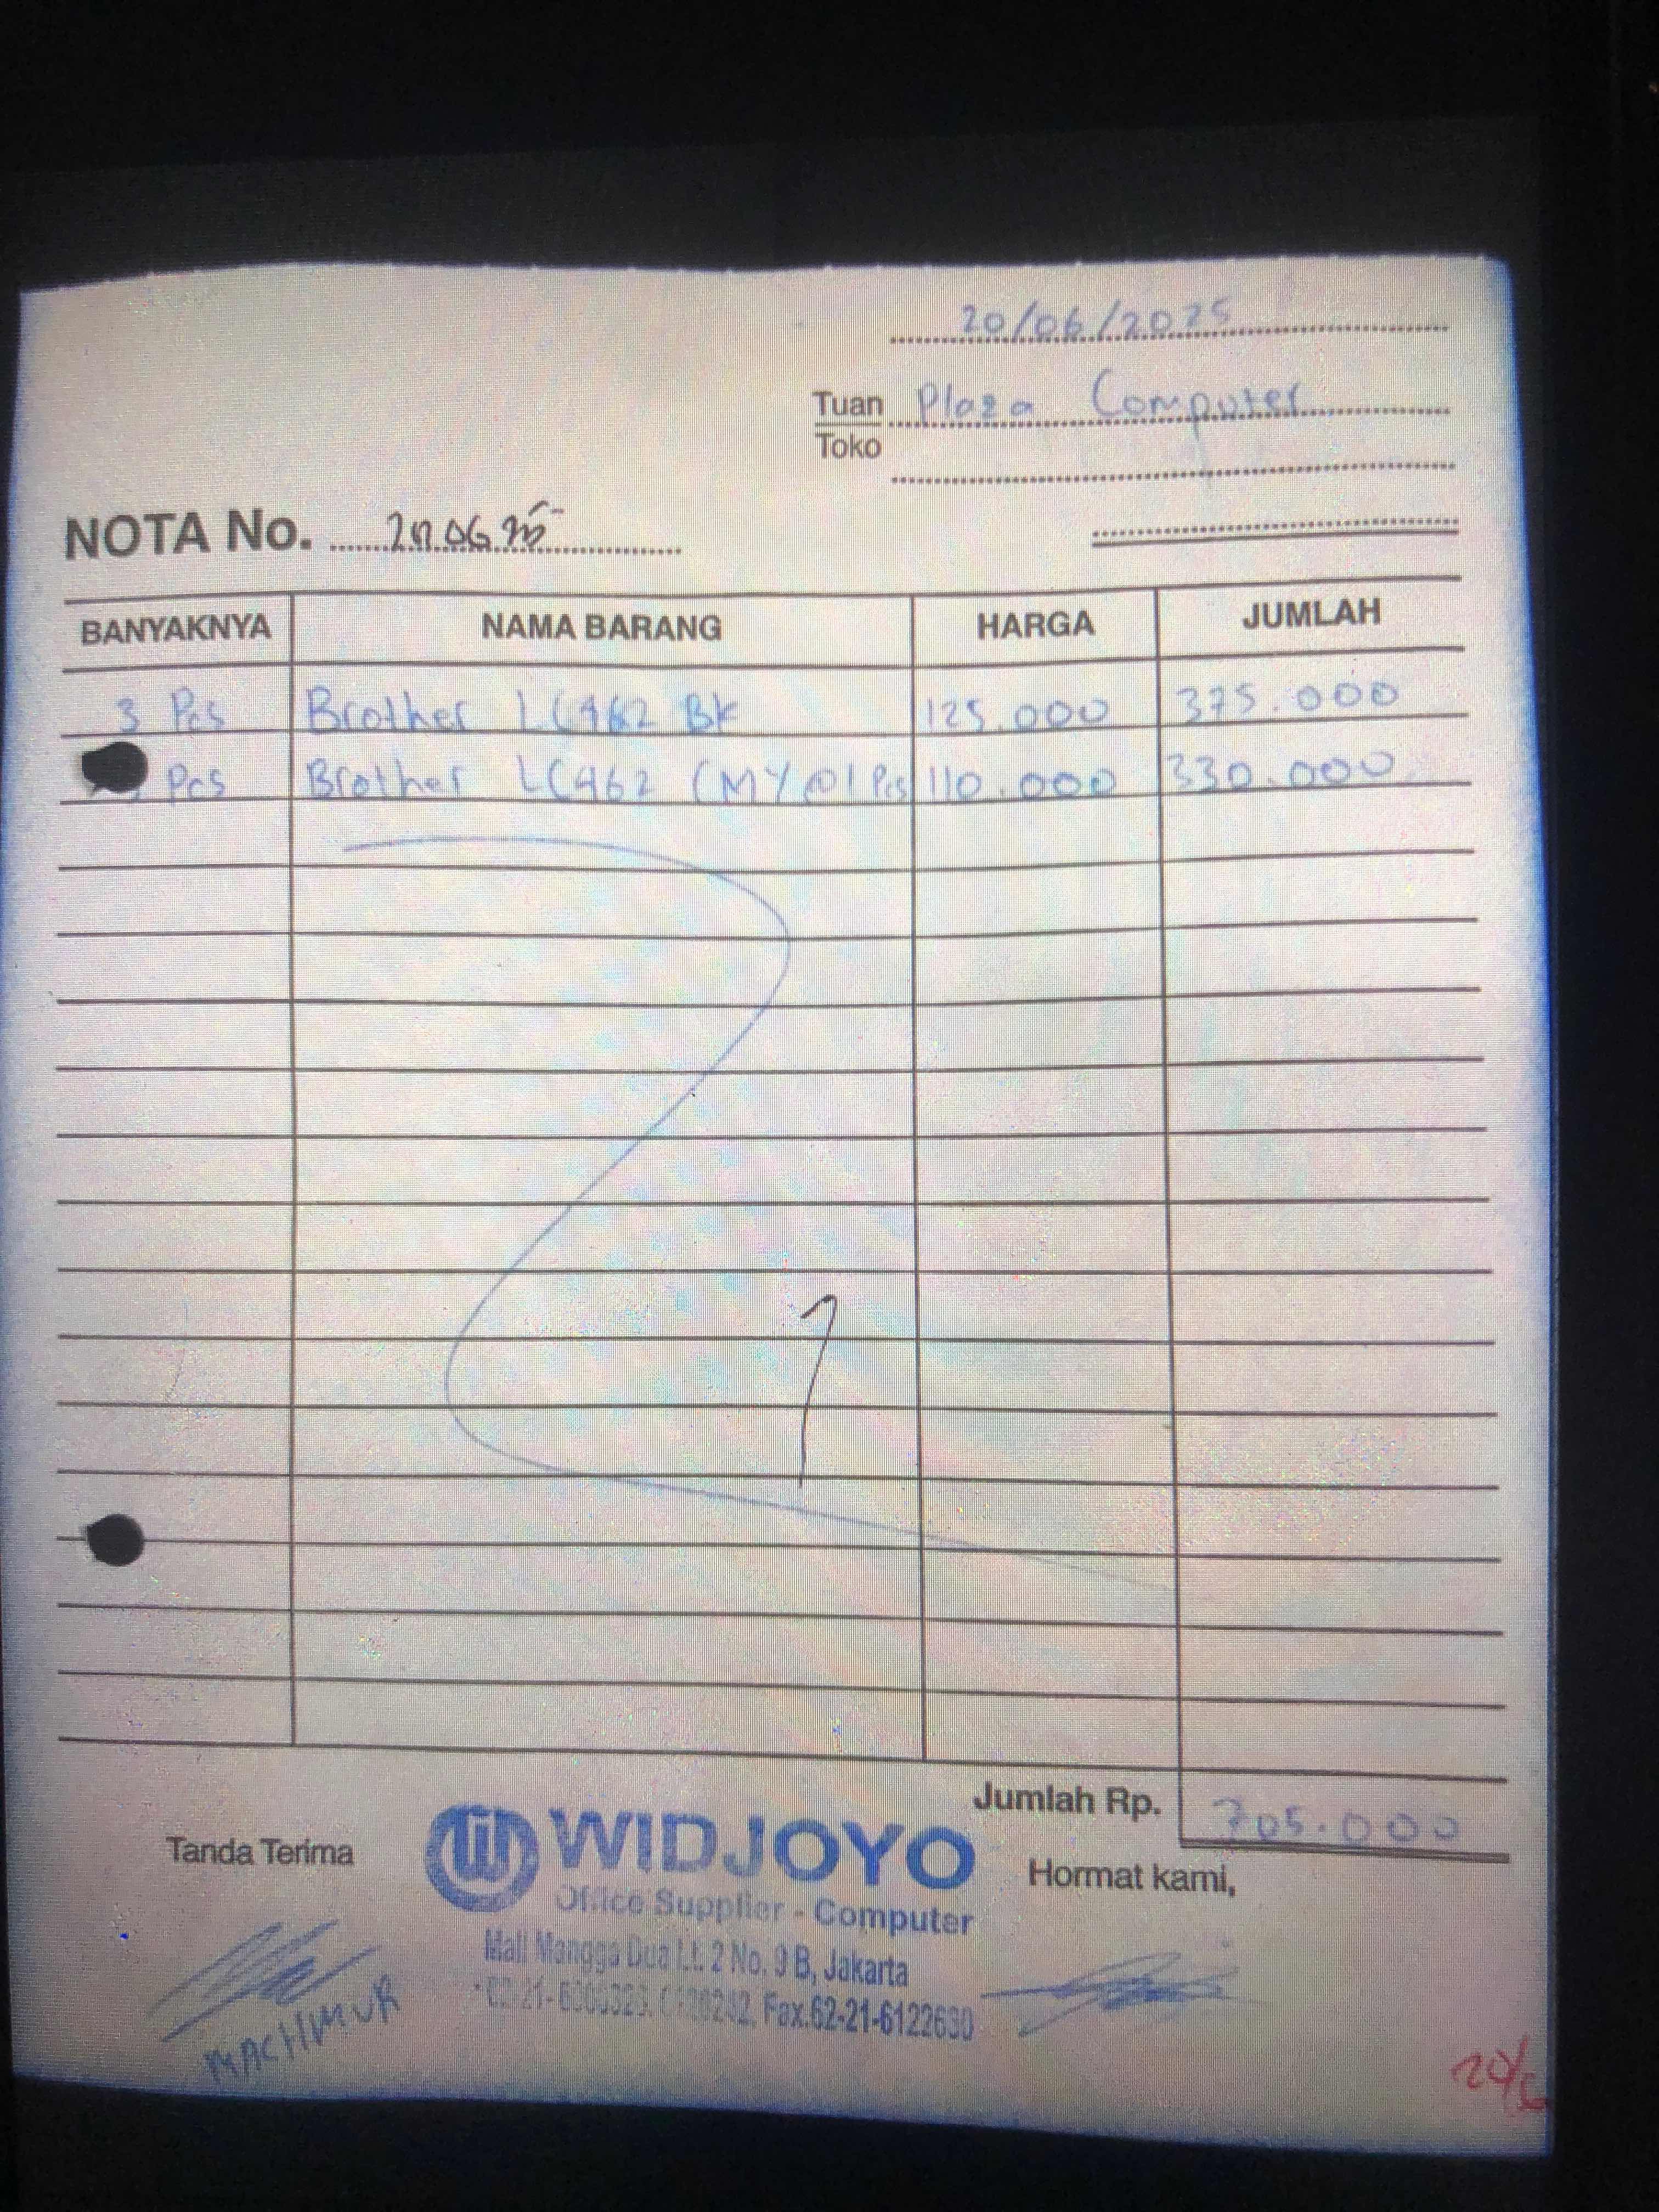 20/06/2025
Tuan Plaza Computer
Toko
NOTA No. 200625
BANYAKNYA NAMA BARANG HARGA JUMLAH
3 Pcs Brother LC462 Bk 125.000 375.000
Pcs Brother LC462 CMY @1 Pcs 110.000 330.000
Jumlah Rp. 705.000
Tanda Terima
WIDJOYO
Hormat kami,
Office Supplier - Computer
Mall Mangga Dua Lt. 2 No. 9 B, Jakarta
Fax.62-21-6122630
MACHMUR
20/6